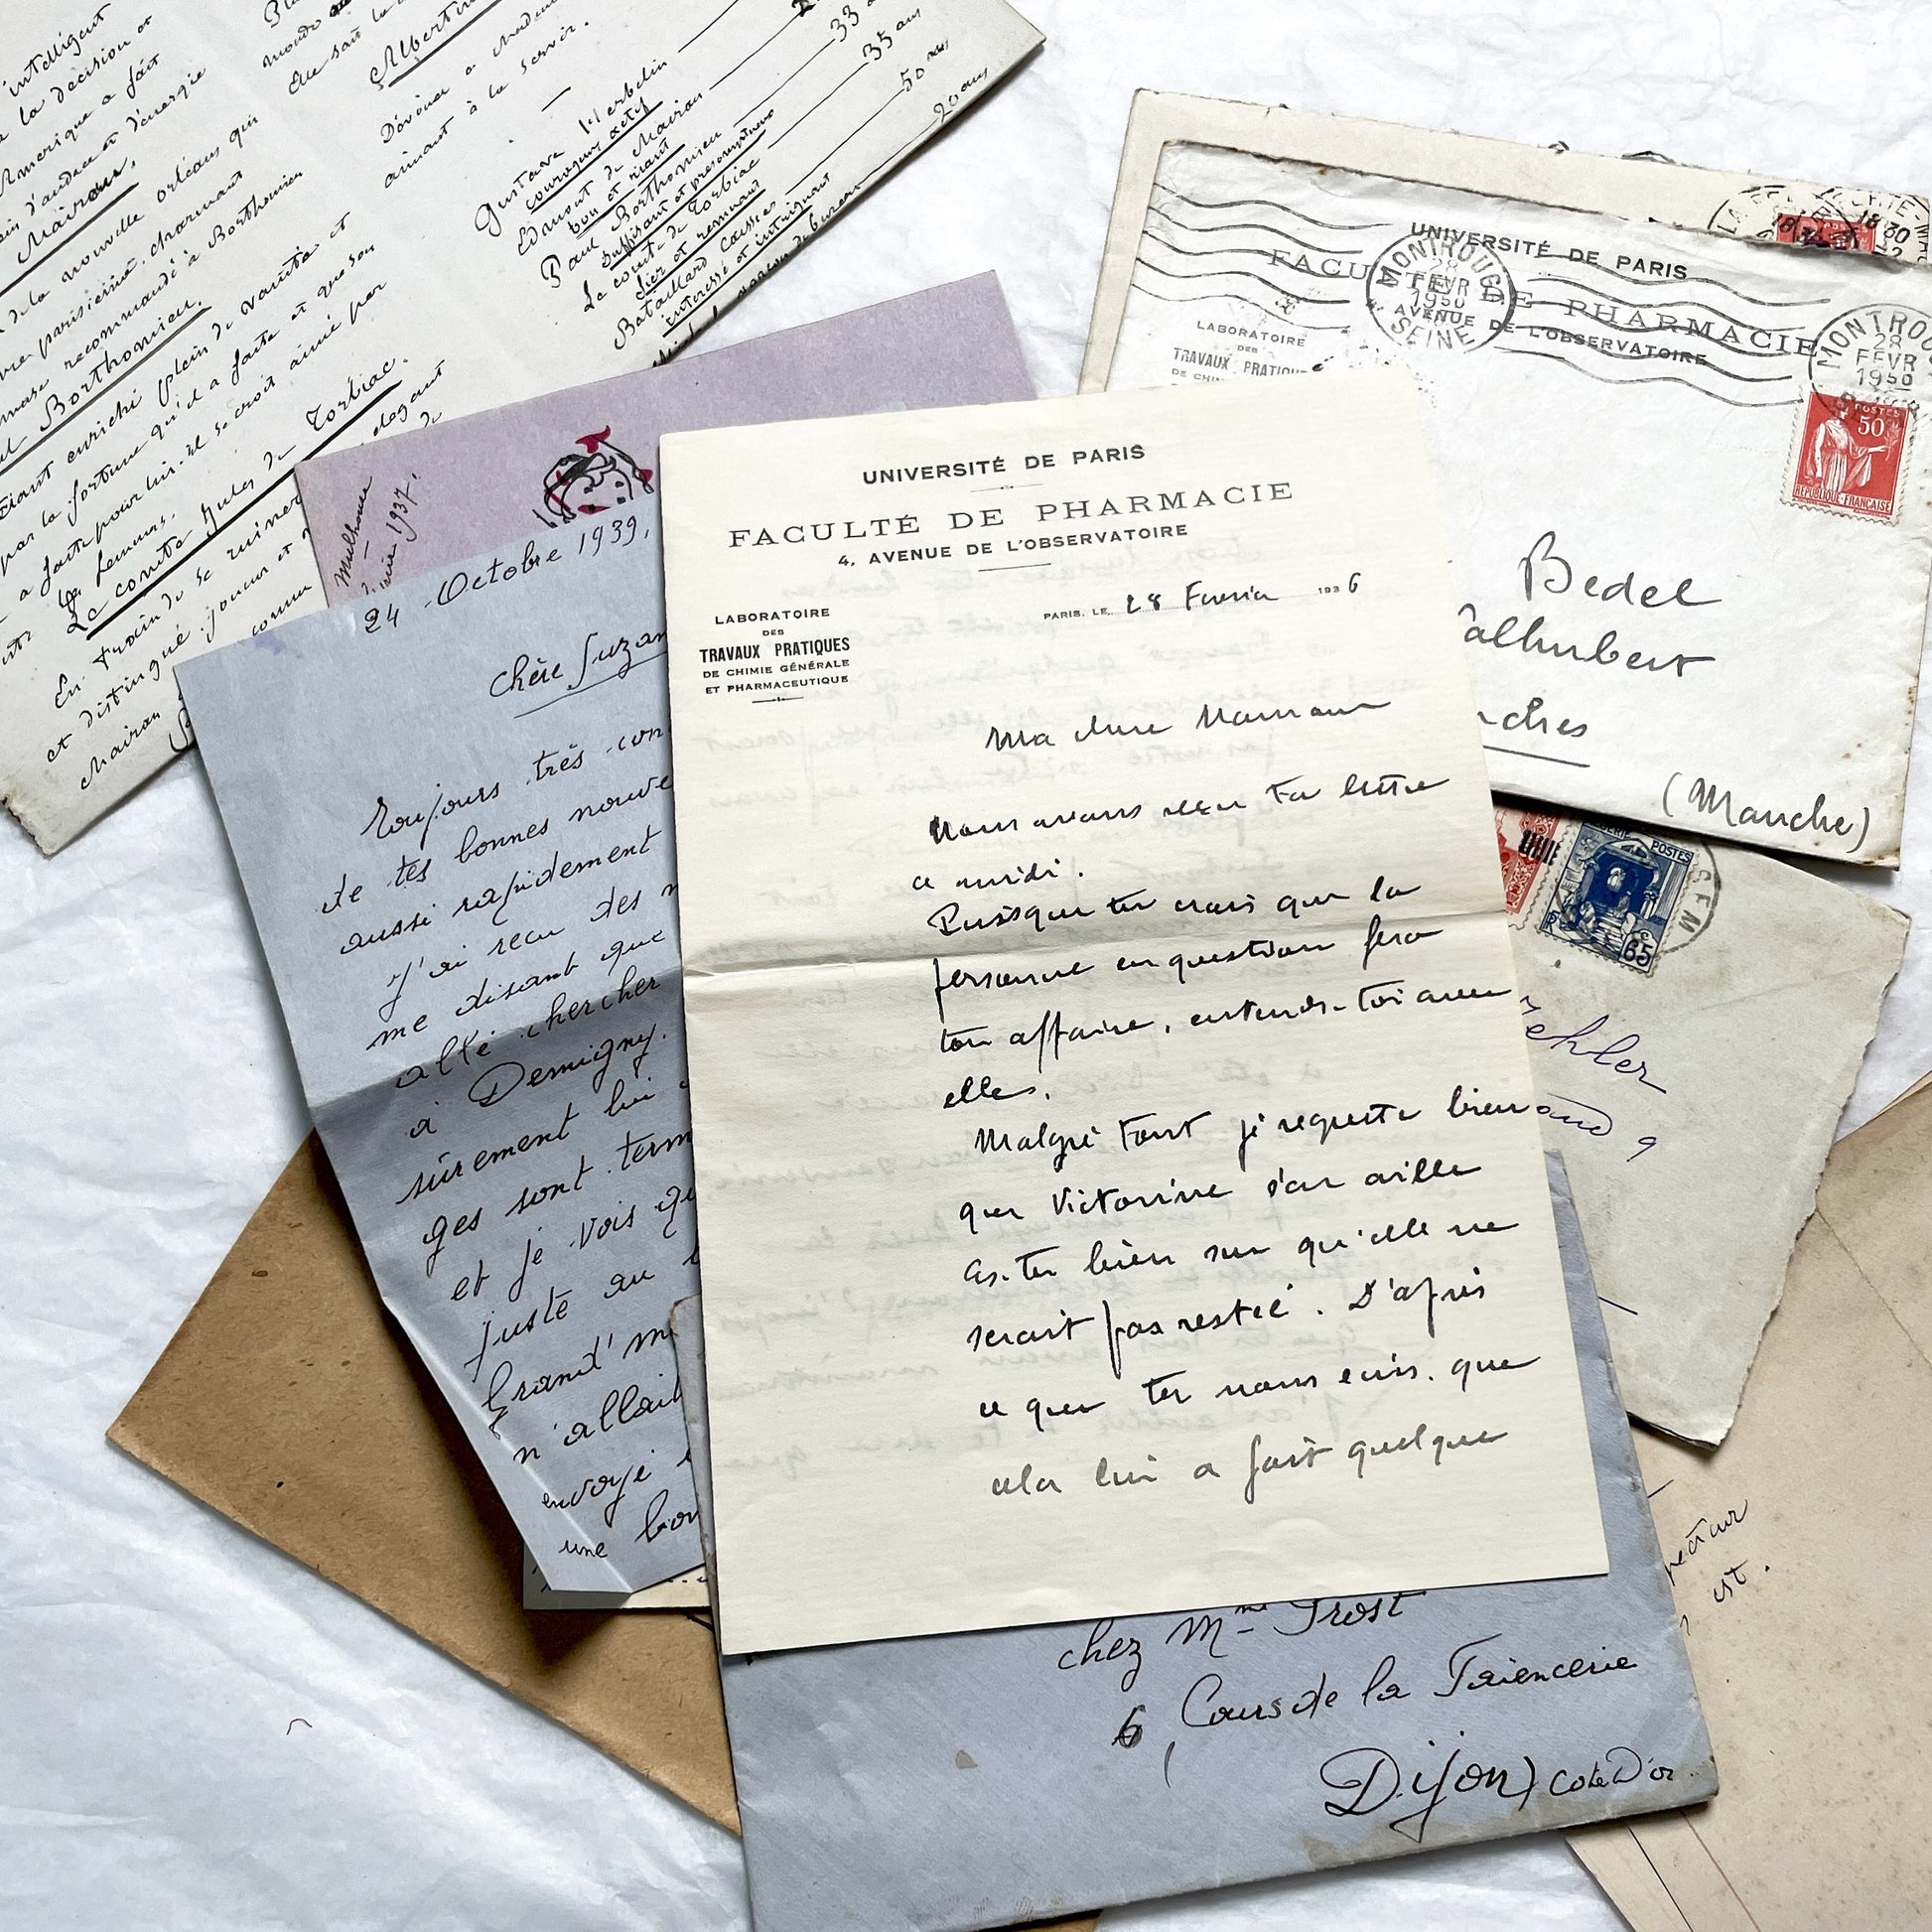 intelligent
la décision et
Amérique a fait
d'audace et d'énergie
Mairan.
de la nouvelle orléans qui
parisienne. charmant
recommandé à Borthomieu
Borthomieu.
enrichi plein de vanité et
par la fortune qu'il a faite et que son
a faite pour lui. il se croit aimé par
les femmes.
Le comte Jules de Torbiac.
En train de se ruiner. élégant
et distingué. joueur et
Mairan comme
monde
Elle sait la
Albertine
Dévouée a
aimant à la servir.
Gustave Herbelin
courageux, actif
Edmont de Mairan
33 ans
bon et riant
Paul Borthomieu
35 ans
suffisant et présomptueux
Le comte de Torbiac
50 ans
fier et remuant
Bataillard caissier
20 ans
intéressé et intrigant
garçon de bureau
Mulhouse
1937.
24 Octobre 1939,
Chère Suzan
Toujours très con
de tes bonnes nouve
aussi rapidement
J'ai reçu des n
me disant que
allé chercher
à Demigny.
sûrement lui
ges sont term
et je vois qu
juste au
Grand' m
n'allait
envoyé
une bon
UNIVERSITÉ DE PARIS
FACULTÉ DE PHARMACIE
4, AVENUE DE L'OBSERVATOIRE
LABORATOIRE
DES
TRAVAUX PRATIQUES
DE CHIMIE GÉNÉRALE
ET PHARMACEUTIQUE
PARIS, LE 28 Février 1936
Ma chère Maman
Nous avons reçu ta lettre
ce midi.
Puisque tu crois que la
personne en question fera
ton affaire, entends-toi avec
elles.
Malgré tout je regrette bien
que Victorine s'en aille
As-tu bien sur qu'elle ne
serait pas restée. D'après
ce que tu nous écris. que
cela lui a fait quelque
UNIVERSITÉ DE PARIS
FACULTÉ DE PHARMACIE
AVENUE DE L'OBSERVATOIRE
LABORATOIRE
DES
TRAVAUX PRATIQUES
DE CHIM
MONTROUGE
28
FEVR
1950
SEINE
MONTROUG
28
FEVR
1950
18 30
POSTES
50
RÉPUBLIQUE FRANÇAISE
Bedel
alhubert
nches
(Manche)
POSTES
65
ehler
and 9
est.
chez Mme Prost
6, Cours de la Faiencerie
Dijon) Cote D'or